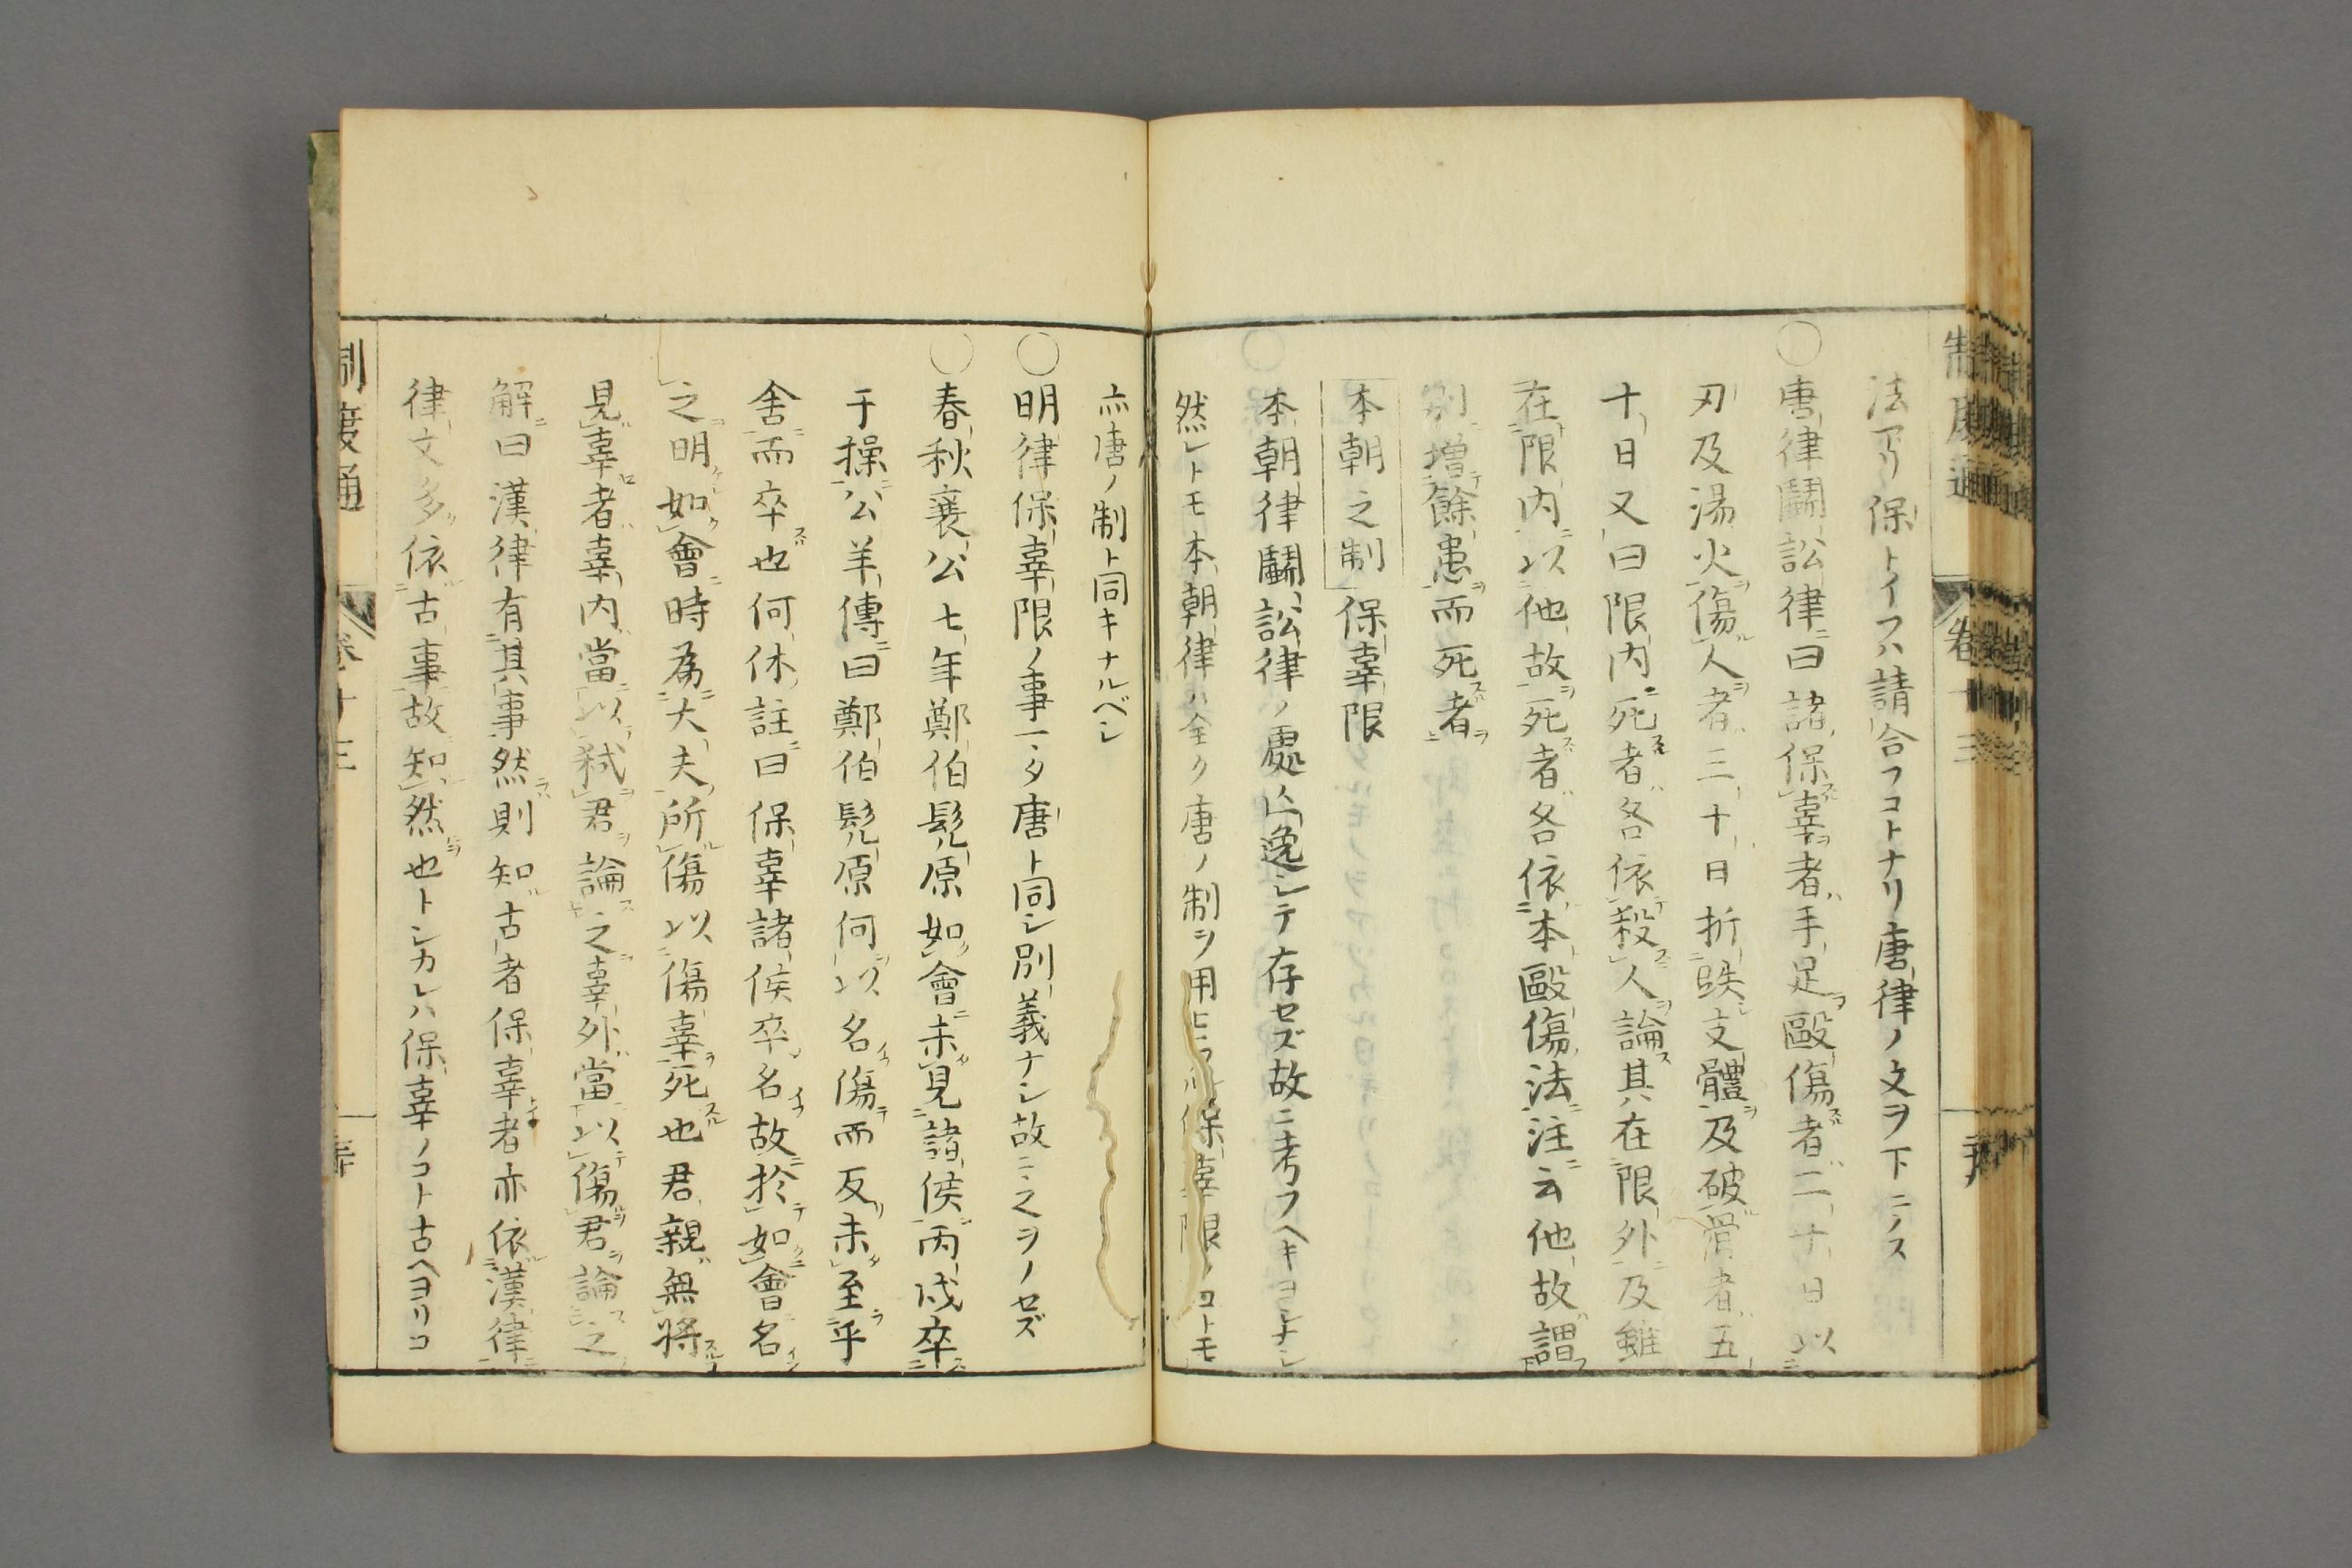 法アリ保トイフハ請合フコトナリ唐律ノ文ヲ下ニノス
○唐律鬭訟律曰諸保辜者手足毆傷者二十日以
刃及湯火傷人者三十日折跌支體及破骨者五
十日又曰限内死者各依殺人論其在限外及雖
在限内以他故死者各依本毆傷法注云他故謂
別增餘患而死者
本朝之制 保辜限
○本朝律鬭訟律ノ處亡逸シテ存セズ故ニ考フヘキヨシナシ
然レトモ本朝律ハ全ク唐ノ制ヲ用ヒラル保辜限ノコトモ
亦唐ノ制ト同キナルベシ
○明律保辜限ノ事一ク唐ト同シ別義ナシ故ニ之ヲノセズ
○春秋襄公七年鄭伯髡原如會未見諸侯丙戌卒
于操公羊傳曰鄭伯髡原何以名傷而反未至乎
舍而卒也何休註曰保辜諸侯卒名故於如會名
之明如會時為大夫所傷以傷辜死也君親無將
見辜者辜内當以弑君論之辜外當以傷君論之
解曰漢律有其事然則知古者保辜者亦依漢律
律文多依古事故知然也トシカレハ保辜ノコト古ヘヨリコ
制度通
卷十三